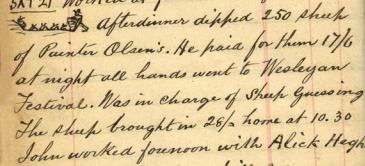 SAT 21 Worked at
Afterdinner dipped 250 sheep
of Painter Olsen's. He paid for them 17/6
at night all hands went to Wesleyan
Festival. Was in charge of Sheep Guessing
The sheep brought in 26/= home at 10.30
John worked forenoon with Alick Hegh